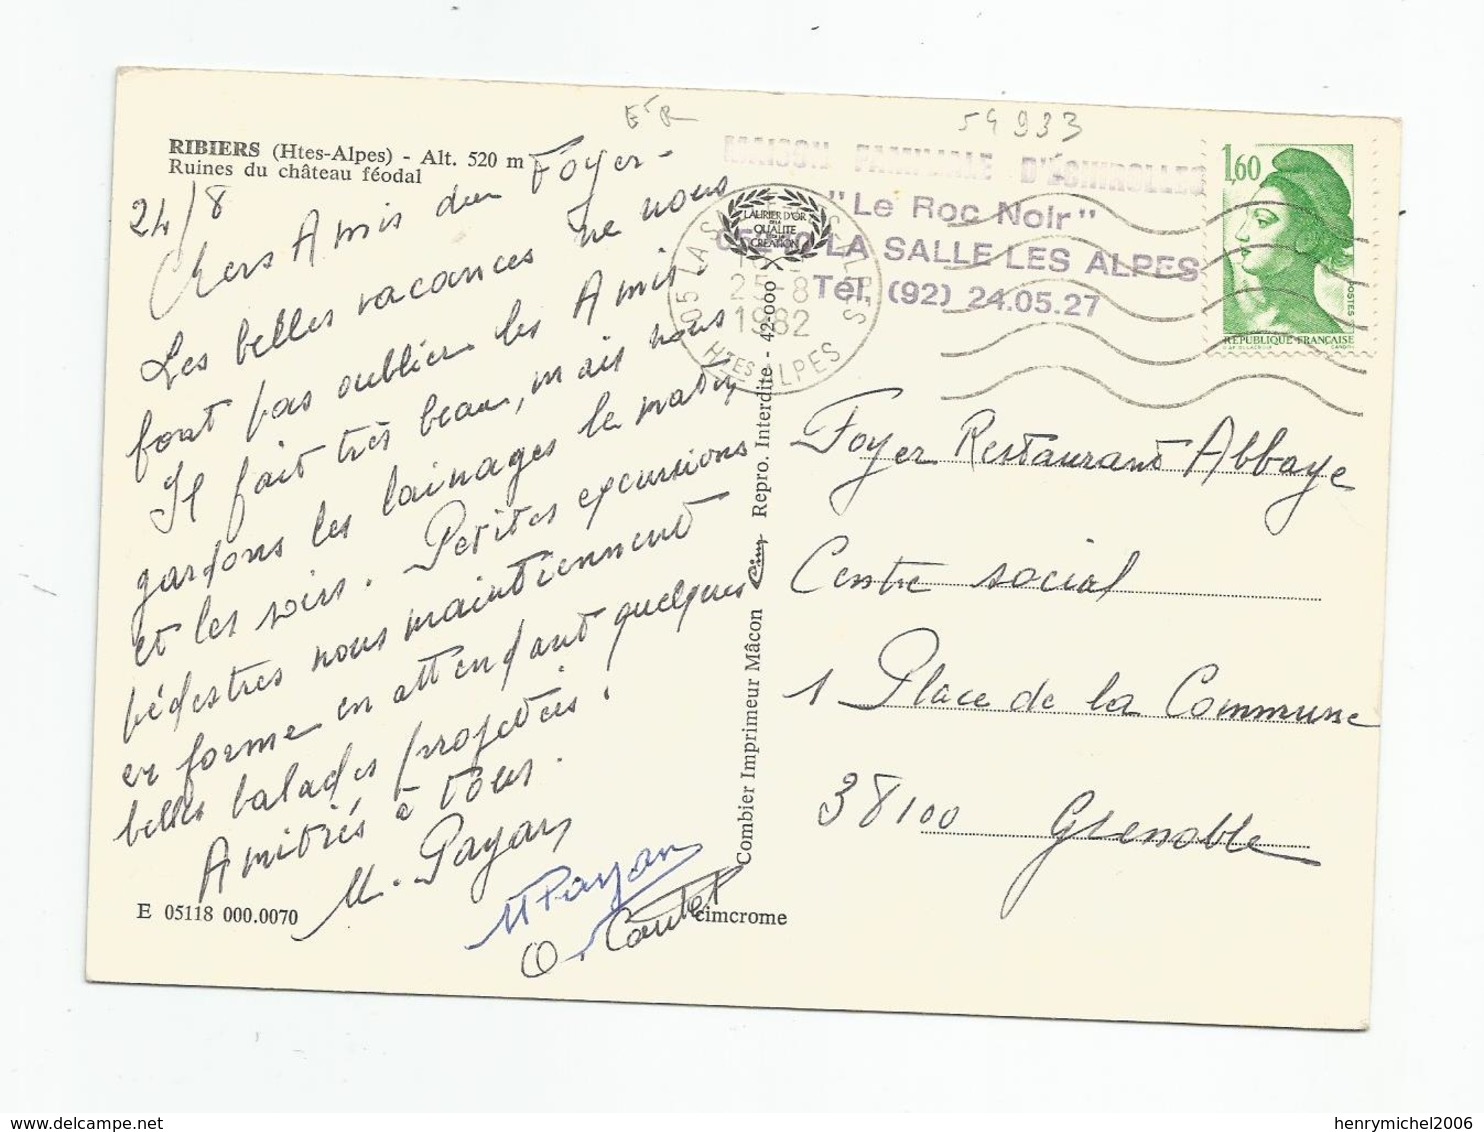 E R
54933
RIBIERS (Htes-Alpes) - Alt. 520 m
Ruines du château féodal
24/8
Chers Amis du Foyer -
Les belles vacances ne nous
font pas oublier les Amis
Il fait très beau, mais nous
gardons les lainages le matin,
et les soirs. Petites excursions
pédestres nous maintiennent
en forme en attendant quelques
belles balades projetées !
Amitiés à tous.
M. Payan
M Payan
O. Coutel
E 05118 000.0070
cimcrome
Combier Imprimeur Mâcon Cim Repro. Interdite - 42-000
LAURIER D'OR
DE LA
QUALITÉ
CRÉATION
25-8
1982
05 LA SALLE LES ALPES
HTES ALPES
MAISON FAMILIALE D'ÉCHIROLLES
"Le Roc Noir"
05240 LA SALLE LES ALPES
Tél. (92) 24.05.27
1,60
POSTES
RÉPUBLIQUE FRANÇAISE
Foyer Restaurant Abbaye
Centre social
1 Place de la Commune
38100 Grenoble
henrymichel2006